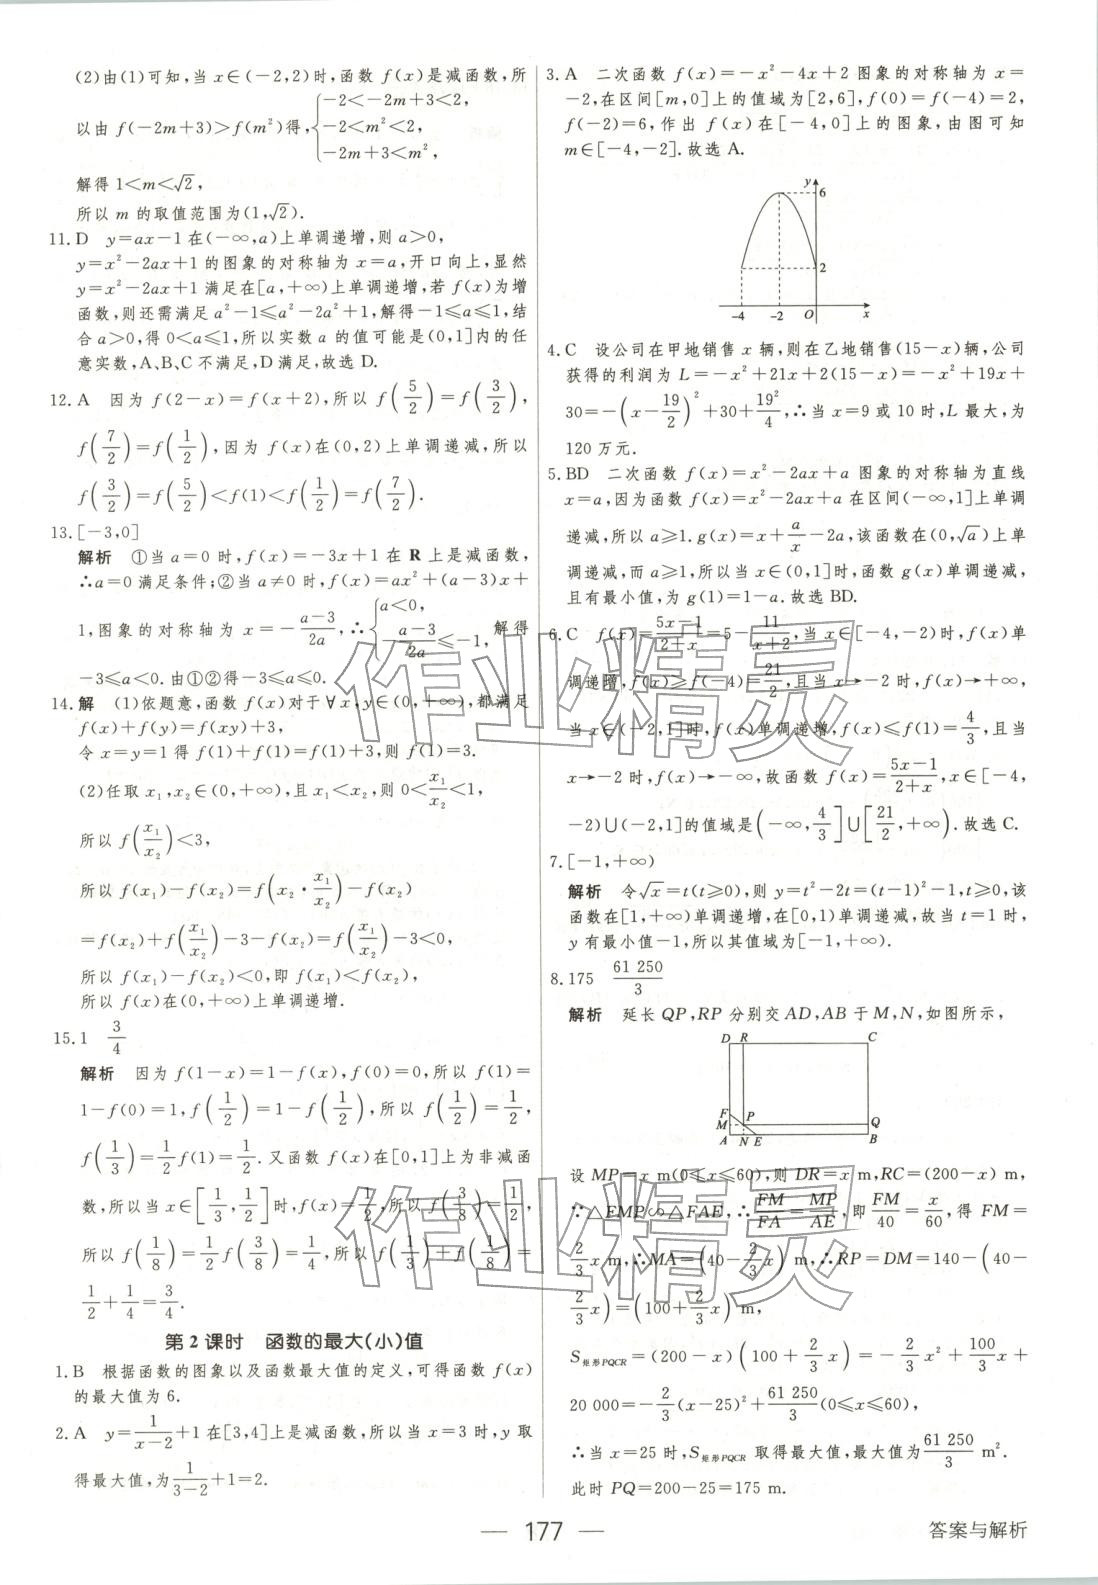 (2)由(1)可知,当 x∈(−2,2)时,函数 f(x)是减函数,所
以由 f(−2m+3)>f(m²)得,{−2<−2m+3<2,
−2<m²<2,
−2m+3<m²,
解得 1<m<√2,
所以 m 的取值范围为(1,√2).
11.D y=ax−1 在(−∞,a)上单调递增,则 a>0,
y=x²−2ax+1 的图象的对称轴为 x=a,开口向上,显然
y=x²−2ax+1 满足在[a,+∞)上单调递增,若 f(x)为增
函数,则还需满足 a²−1≤a²−2a²+1,解得−1≤a≤1,结
合 a>0,得 0<a≤1,所以实数 a 的值可能是(0,1]内的任
意实数,A、B、C 不满足,D 满足,故选 D.
12.A 因为 f(2−x)=f(x+2),所以 f(5/2)=f(3/2),
f(7/2)=f(1/2),因为 f(x)在(0,2)上单调递减,所以
f(3/2)=f(5/2)<f(1)<f(1/2)=f(7/2).
13.[−3,0]
解析 ①当 a=0 时,f(x)=−3x+1 在 R 上是减函数,
∴a=0 满足条件;②当 a≠0 时,f(x)=ax²+(a−3)x+
1,图象的对称轴为 x=−(a−3)/2a,∴{a<0, −(a−3)/2a≤−1, 解得
−3≤a<0.由①②得−3≤a≤0.
14.解 (1)依题意,函数 f(x)对于∀x,y∈(0,+∞),都满足
f(x)+f(y)=f(xy)+3,
令 x=y=1 得 f(1)+f(1)=f(1)+3,则 f(1)=3.
(2)任取 x₁,x₂∈(0,+∞),且 x₁<x₂,则 0<x₁/x₂<1,
所以 f(x₁/x₂)<3,
所以 f(x₁)−f(x₂)=f(x₂·x₁/x₂)−f(x₂)
=f(x₂)+f(x₁/x₂)−3−f(x₂)=f(x₁/x₂)−3<0,
所以 f(x₁)−f(x₂)<0,即 f(x₁)<f(x₂),
所以 f(x)在(0,+∞)上单调递增.
15.1 3/4
解析 因为 f(1−x)=1−f(x),f(0)=0,所以 f(1)=
1−f(0)=1,f(1/2)=1−f(1/2),所以 f(1/2)=1/2,
f(1/3)=1/2 f(1)=1/2.又函数 f(x)在[0,1]上为非减函
数,所以当 x∈[1/3,1/2]时,f(x)=1/2,所以 f(3/8)=1/2,
所以 f(1/8)=1/2 f(3/8)=1/4,所以 f(1/3)+f(1/8)=
1/2+1/4=3/4.
第 2 课时 函数的最大(小)值
1.B 根据函数的图象以及函数最大值的定义,可得函数 f(x)
的最大值为 6.
2.A y=1/(x−2)+1 在[3,4]上是减函数,所以当 x=3 时,y 取
得最大值,为1/(3−2)+1=2.
3.A 二次函数 f(x)=−x²−4x+2 图象的对称轴为 x=
−2,在区间[m,0]上的值域为[2,6],f(0)=f(−4)=2,
f(−2)=6,作出 f(x)在[−4,0]上的图象,由图可知
m∈[−4,−2].故选 A.
y
6
2
−4 −2 O x
4.C 设公司在甲地销售 x 辆,则在乙地销售(15−x)辆,公司
获得的利润为 L=−x²+21x+2(15−x)=−x²+19x+
30=−(x−19/2)²+30+19²/4,∴当 x=9 或 10 时,L 最大,为
120 万元.
5.BD 二次函数 f(x)=x²−2ax+a 图象的对称轴为直线
x=a,因为函数 f(x)=x²−2ax+a 在区间(−∞,1]上单调
递减,所以 a≥1.g(x)=x+a/x−2a,该函数在(0,√a)上单
调递减,而 a≥1,所以当 x∈(0,1]时,函数 g(x)单调递减,
且有最小值,为 g(1)=1−a.故选 BD.
6.C f(x)=(5x−1)/(2+x)=5−11/(x+2),当 x∈[−4,−2)时,f(x)单
调递增,f(x)≥f(−4)=21/2,且当 x→−2 时,f(x)→+∞,
当 x∈(−2,1]时,f(x)单调递增,f(x)≤f(1)=4/3,且当
x→−2 时,f(x)→−∞,故函数 f(x)=(5x−1)/(2+x),x∈[−4,
−2)∪(−2,1]的值域是(−∞,4/3]∪[21/2,+∞).故选 C.
7.[−1,+∞)
解析 令√x=t(t≥0),则 y=t²−2t=(t−1)²−1,t≥0,该
函数在[1,+∞)单调递增,在[0,1)单调递减,故当 t=1 时,
y 有最小值−1,所以其值域为[−1,+∞).
8.175 61 250/3
解析 延长 QP,RP 分别交 AD,AB 于 M,N,如图所示,
D R C
F
M P Q
A N E B
设 MP=x m(0≤x≤60),则 DR=x m,RC=(200−x) m,
∵△FMP∽△FAE,∴FM/FA=MP/AE,即FM/40=x/60,得 FM=
2/3 x m,∴MA=(40−2/3 x) m,∴RP=DM=140−(40−
2/3 x)=(100+2/3 x)m,
S矩形PQCR=(200−x)(100+2/3 x)=−2/3 x²+100/3 x+
20 000=−2/3(x−25)²+61 250/3(0≤x≤60),
∴当 x=25 时,S矩形PQCR 取得最大值,最大值为61 250/3 m².
此时 PQ=200−25=175 m.
作业精灵
作业精灵
— 177 —
答案与解析